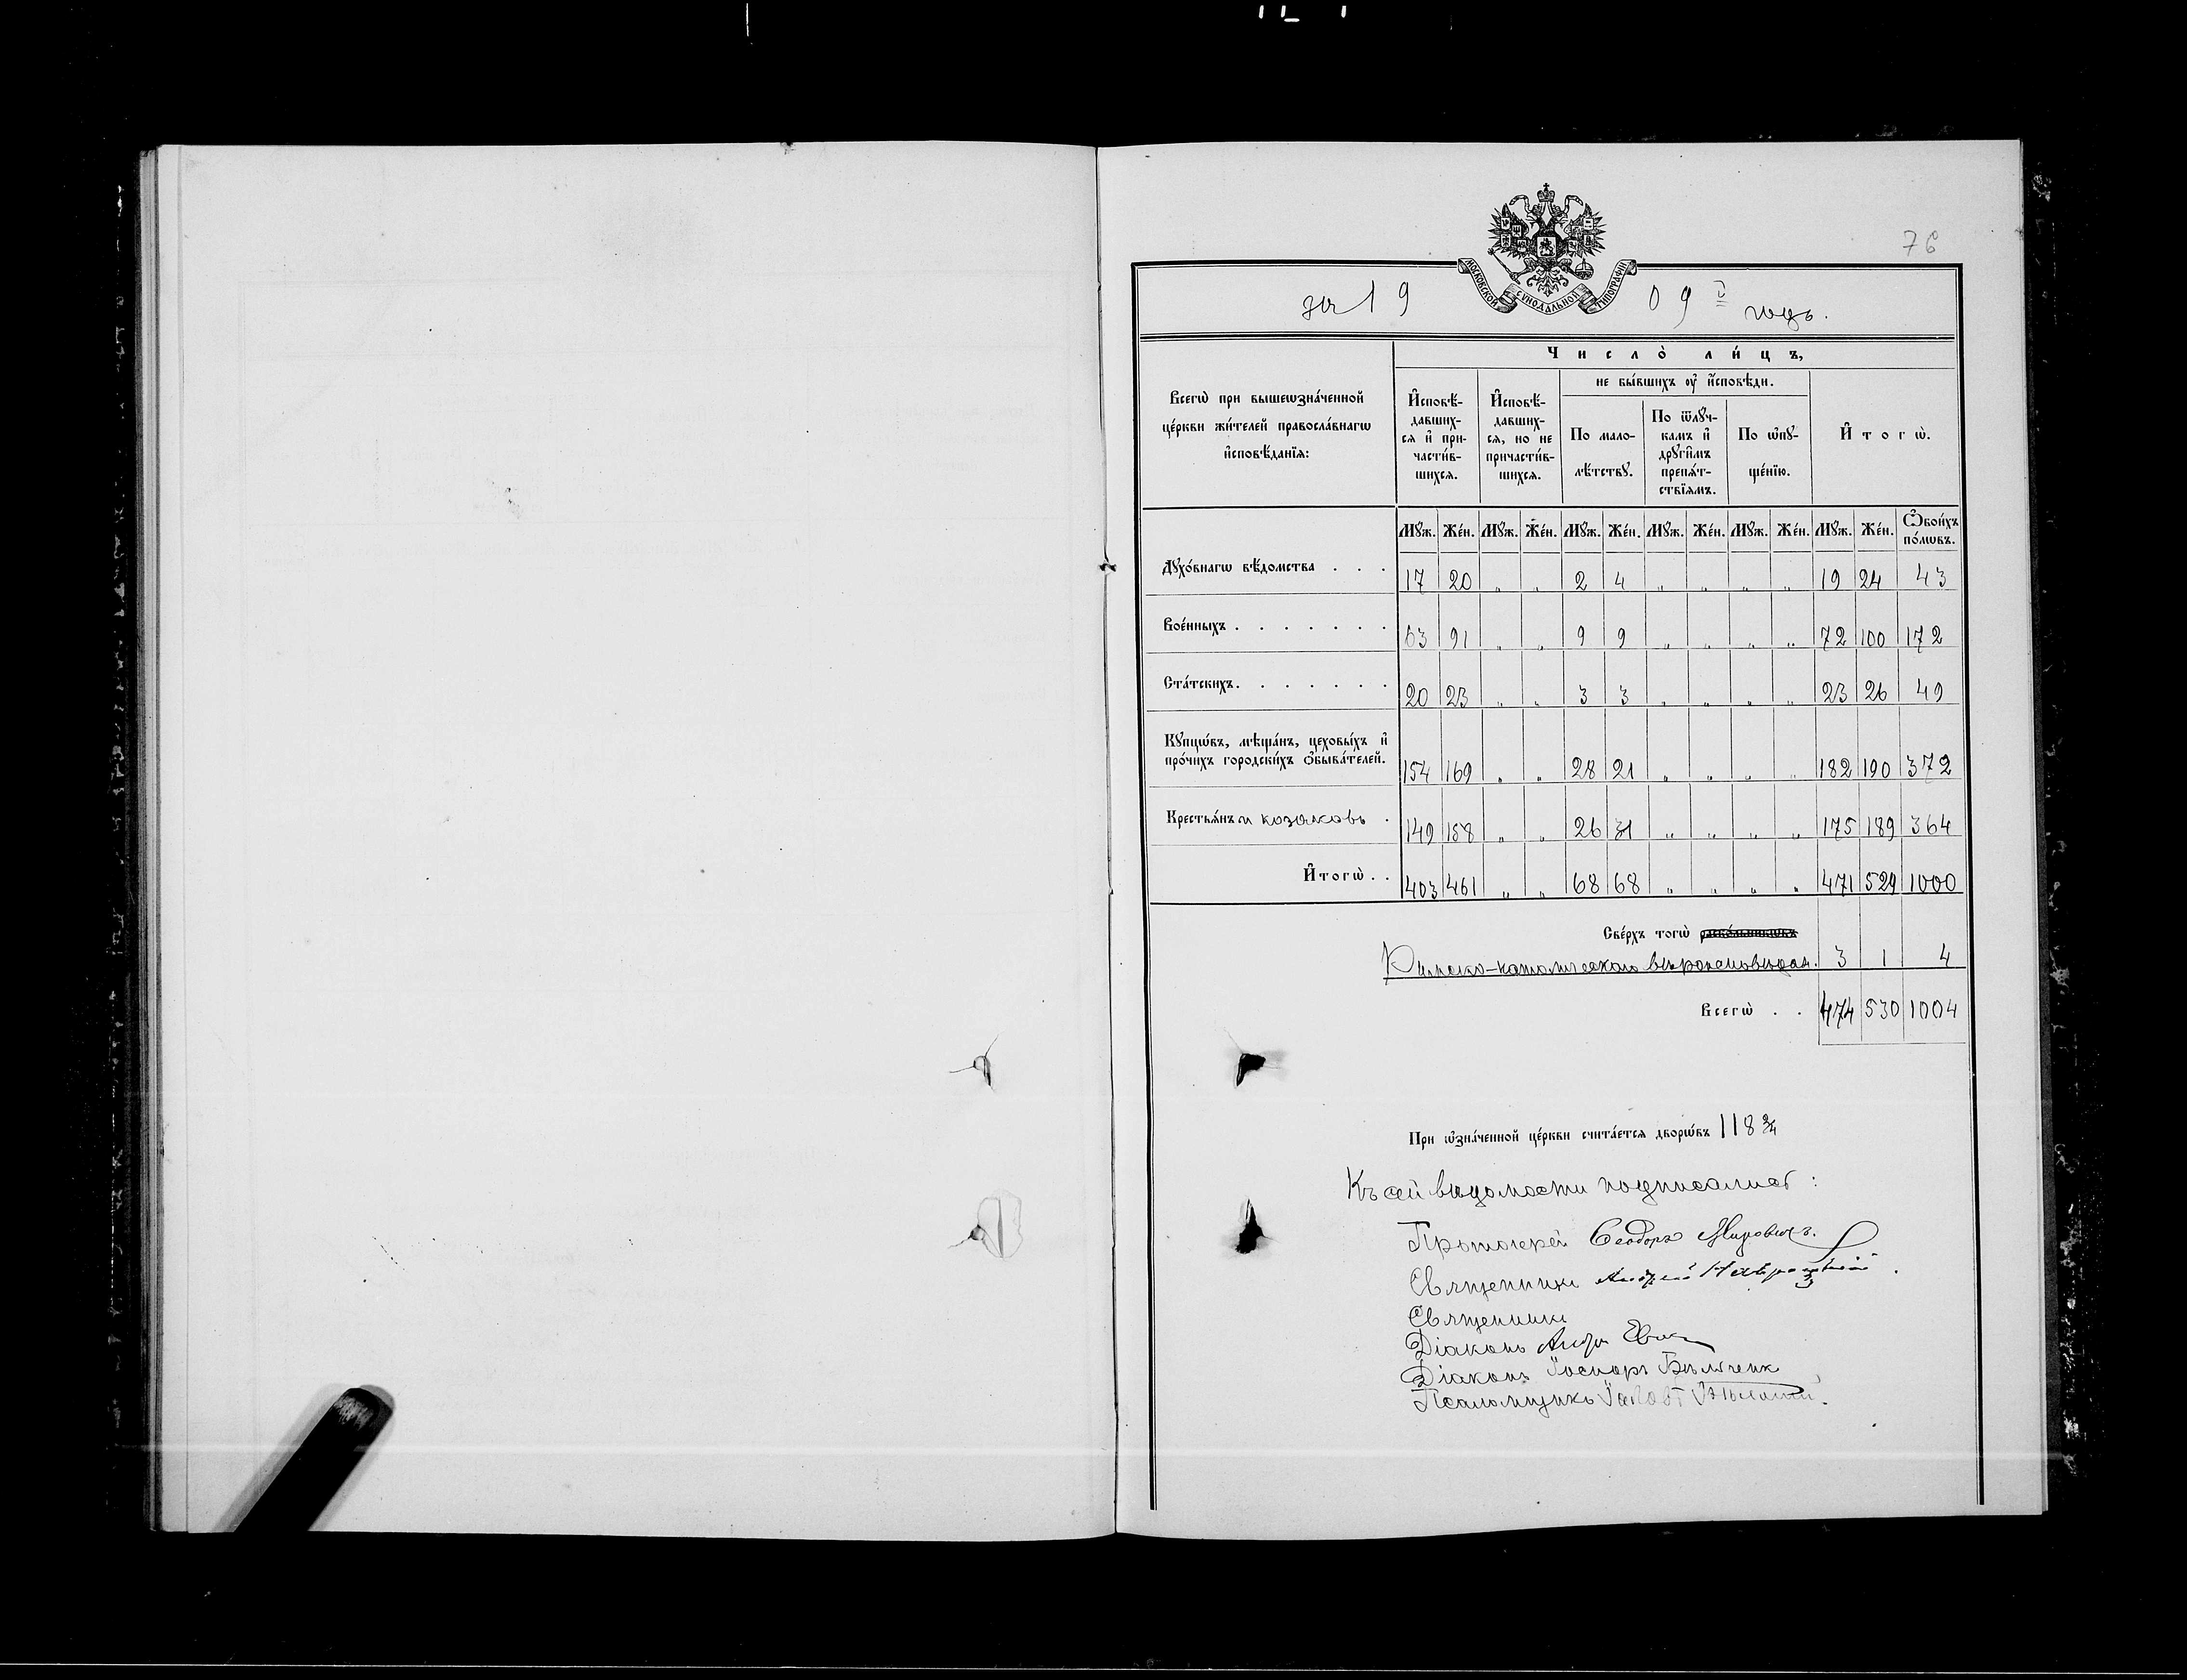 76
МОСКОВСКОЙ СѴНОДАЛЬНОЙ ТИПОГРАФІИ
за 19 09 г годъ.
Число̀ ли́цъ,
Всегѡ̀ при вышеѡзна́ченной це́ркви жи́телей правосла́внагѡ и҆сповѣ́данїѧ:
И҆сповѣ́давшихсѧ и҆ причасти́вшихсѧ.
И҆сповѣ́давшихсѧ, но не причасти́вшихсѧ.
не бы́вшихъ ᲂу҆ и҆́сповѣди.
По малолѣ́тствꙋ.
По ѿлꙋ́чкамъ и҆ дрꙋги̑мъ препѧ́тствїѧмъ.
По ѡ҆пꙋще́нїю.
И҆тогѡ̀.
Мꙋж. Же́н. Мꙋж. Же́н. Мꙋж. Же́н. Мꙋж. Же́н. Мꙋж. Же́н. Мꙋж. Же́н. Ѻ҆бои́хъ по́лѡвъ.
Дꙋхо́внагѡ вѣ́домства . . . 17 20 „ „ 2 4 „ „ „ „ 19 24 43
Вое́нныхъ . . . . . . . 63 91 „ „ 9 9 „ „ „ „ 72 100 172
Ста́тскихъ . . . . . . 20 23 „ „ 3 3 „ „ „ „ 23 26 49
Кꙋпцѡ́въ, мѣща́нъ, цеховы́хъ и҆
про́чихъ городски́хъ ѻ҆быва́телей. 154 169 „ „ 28 21 „ „ „ „ 182 190 372
Крестьѧ́нъ и козаковъ . 149 158 „ „ 26 31 „ „ „ „ 175 189 364
И҆тогѡ̀ . . 403 461 „ „ 68 68 „ „ „ „ 471 529 1000
Све́рхъ тогѡ̀ раско́льникѡвъ
Римско-католическаго вѣроисповѣдан. 3 1 4
Всегѡ̀ . . 474 530 1004
При ѡ҆зна́ченной це́ркви счита́етсѧ дворѡ́въ 118 ¾
Къ сей вѣдомости подписались:
Протоіерей Ѳеодоръ Мировичъ.
Священникъ Андрей Навроцкій.
Священникъ
Діаконъ
Діаконъ
Псаломщикъ